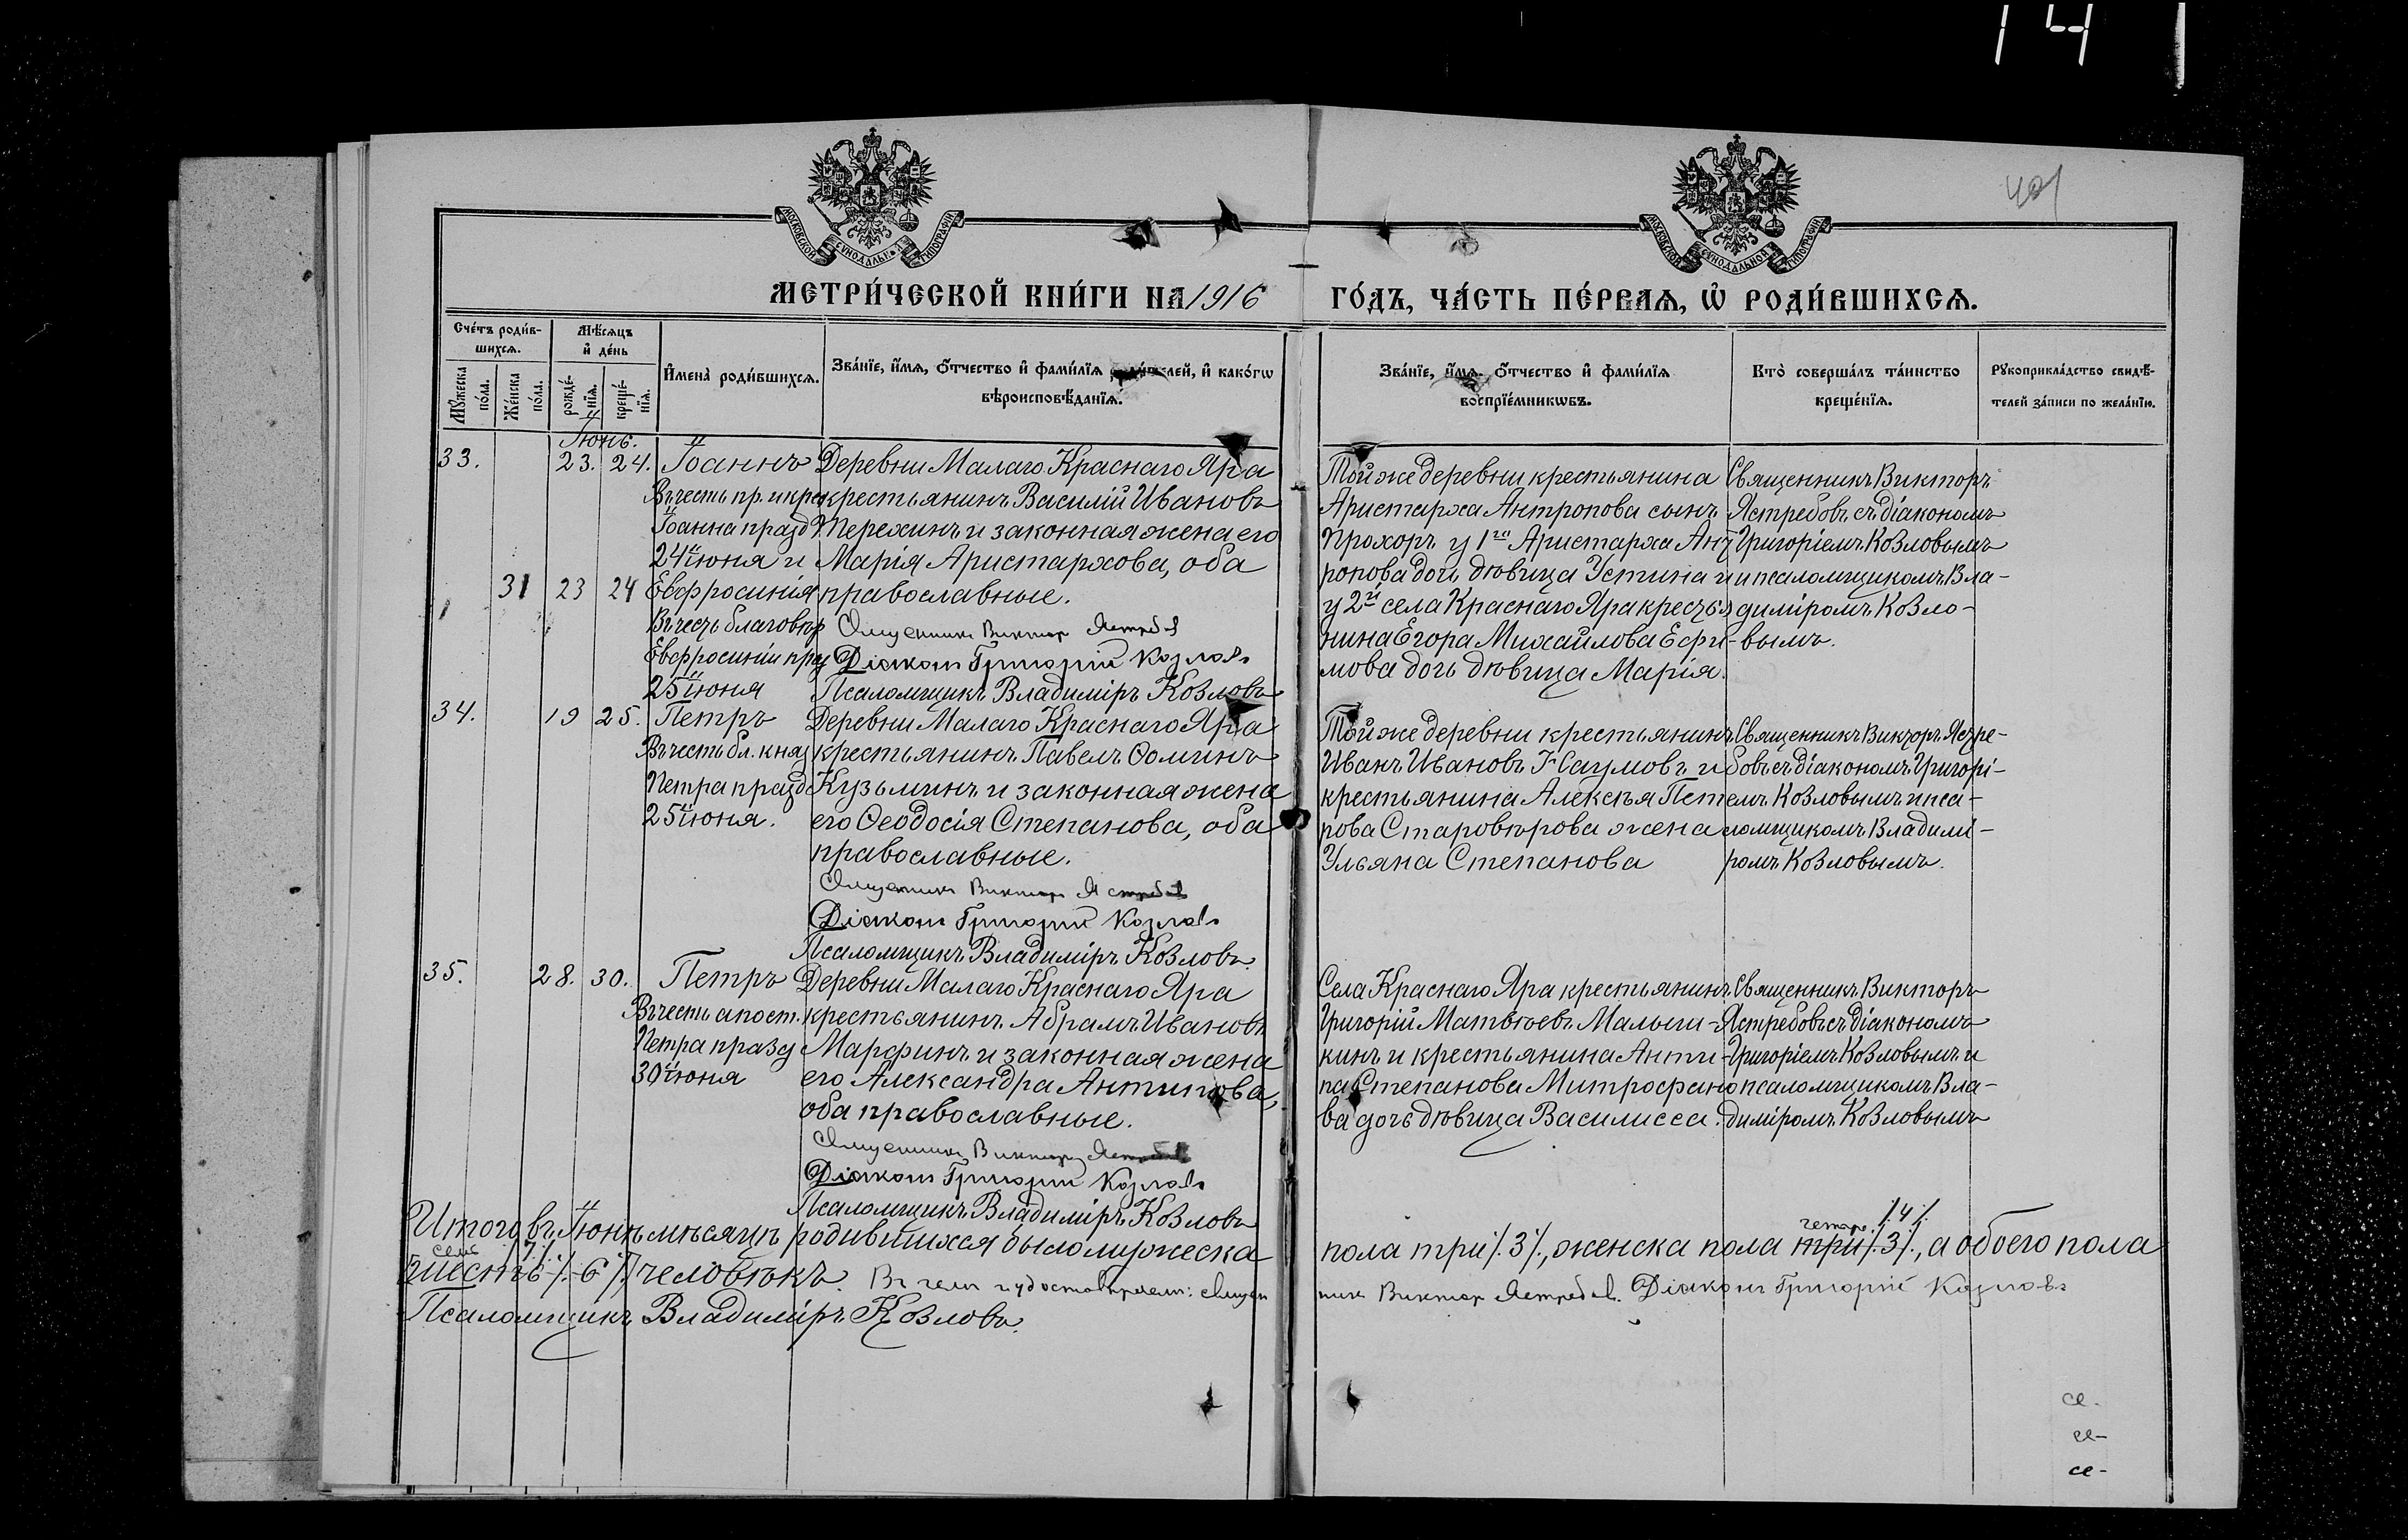 14
401
МОСКОВСКОЙ СѴНОДАЛЬНОЙ ТИПОГРАФІИ
МОСКОВСКОЙ СѴНОДАЛЬНОЙ ТИПОГРАФІИ
МЕТРИ́ЧЕСКОЙ КНИ́ГИ НА 1916 ГО́ДЪ, ЧА́СТЬ ПЕ́РВАѦ, Ѡ РОДИ́ВШИХСѦ.
Сче́тъ роди́в-
шихсѧ.
Мꙋ́жеска
по́ла.
Же́нска
по́ла.
Мѣ́сѧцъ
и҆ де́нь
рожде́-
нїѧ.
креще́-
нїѧ.
И҆мена̀ роди́вшихсѧ.
Зва́нїе, и҆́мѧ, ѻ҆́тчество и҆ фами́лїѧ роди́телей, и҆ како́гѡ
вѣроисповѣ́данїѧ.
Зва́нїе, и҆́мѧ, ѻ҆́тчество и҆ фами́лїѧ
воспрїе́мникѡвъ.
Кто̀ соверша́лъ та́инство
креще́нїѧ.
Рꙋкоприкла́дство свидѣ́-
телей за́писи по жела́нїю.
Іюнь.
33.
23.
24.
Іоаннъ
Въ честь пр. и кре
Іоанна празд
24 іюня и
31
23
24
Евфросинія
Въ честь благовѣр
Евфросиніи праз
25 іюня
Деревни Малаго Краснаго Яра
крестьянинъ Василій Ивановъ
Пережинъ и законная жена его
Марія Аристархова, оба
православные.
Священникъ Викторъ Ястребовъ
Діаконъ Григорій Козловъ
Псаломщикъ Владиміръ Козловъ
Той же деревни крестьянина
Аристарха Антропова сынъ
Прохоръ у 1го Аристарха Ант
ропова дочь дѣвица Устина и
у 2й села Краснаго Яра крестья
нина Егора Михайлова Ефи-
мова дочь дѣвица Марія.
Священникъ Викторъ
Ястребовъ съ діакономъ
Григоріемъ Козловымъ
и псаломщикомъ Вла-
диміромъ Козло-
вымъ.
34.
19
25.
Петръ
Въ честь бл. княз
Петра празд
25 іюня.
Деревни Малаго Краснаго Яра
крестьянинъ Павелъ Ѳоминъ
Кузьминъ и законная жена
его Ѳеодосія Степанова, оба
православные.
Священникъ Викторъ Ястребовъ
Діаконъ Григорій Козловъ
Псаломщикъ Владиміръ Козловъ.
Той же деревни крестьянинъ
Иванъ Ивановъ Наумовъ и
крестьянина Алексѣя Пет
рова Старовѣрова жена
Ульяна Степанова
Священникъ Викторъ Ястре-
бовъ съ діакономъ Григорі-
емъ Козловымъ и пса-
ломщикомъ Владимі-
ромъ Козловымъ.
35.
28.
30.
Петръ
Въ честь апост.
Петра празд
30 іюня
Деревни Малаго Краснаго Яра
крестьянинъ Абрамъ Ивановъ
Марфинъ и законная жена
его Александра Антипова,
оба православные.
Священникъ Викторъ Ястребовъ
Діаконъ Григорій Козловъ
Псаломщикъ Владиміръ Козловъ
Села Краснаго Яра крестьянинъ
Григорій Матвѣевъ Малыш-
кинъ и крестьянина Анти-
па Степанова Митрофано
ва дочь дѣвица Василисса.
Священникъ Викторъ
Ястребовъ съ діакономъ
Григоріемъ Козловымъ и
псаломщикомъ Вла-
диміромъ Козловымъ
Итого въ Іюнѣ мѣсяцѣ родившихся было мужеска пола три /.3/., женска пола три /.3/., а обоего пола
четыре /.4/.
семь /.7/.
шесть /.6/. человѣкъ. Въ чемъ и удостовѣряемъ: священникъ Викторъ Ястребовъ. Діаконъ Григорій Козловъ
Псаломщикъ Владиміръ Козловъ.
се-
се-
се-